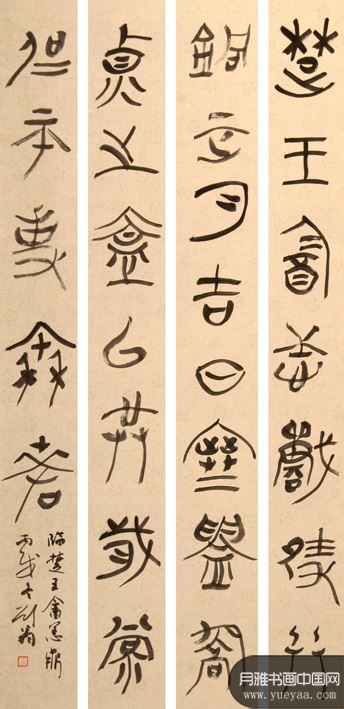 楚王酓忎戰隻兵
銅正月吉日窒鑄喬
貞之盍以共歲嘗
但帀吏秦差
臨楚王酓忎鼎
丙戌冬
月雅书画中国网
www.yueyaa.com